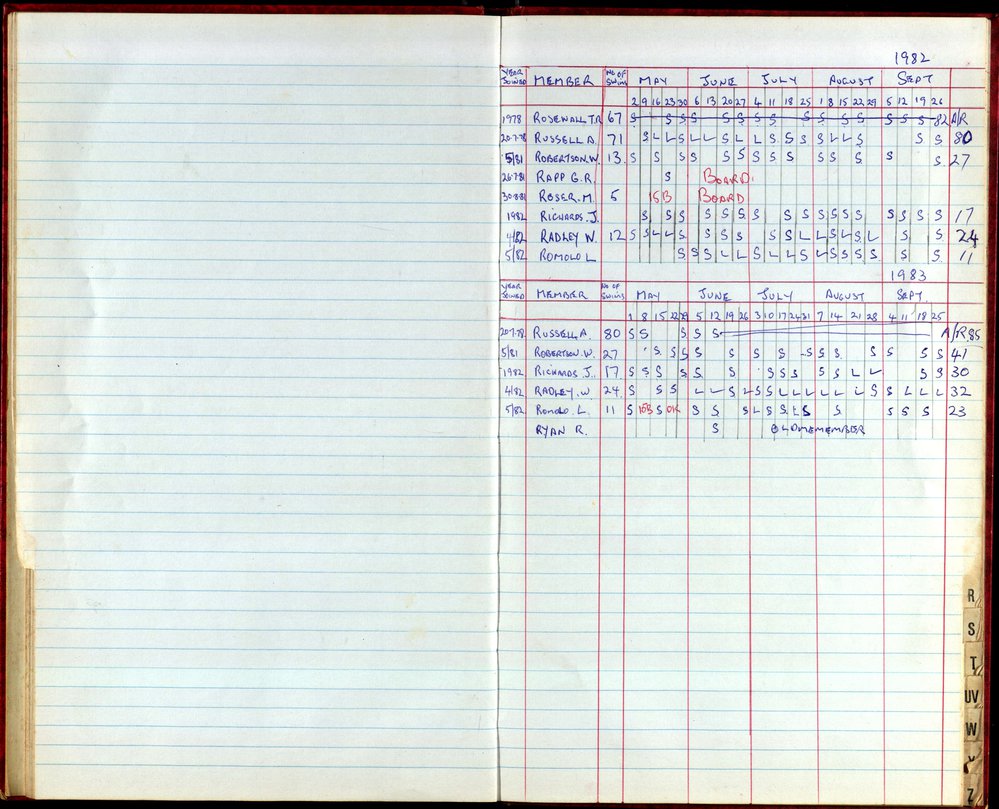 1982
YEAR JOINED MEMBER NO OF SWIMS MAY JUNE JULY AUGUST SEPT
2 9 16 23 30 6 13 20 27 4 11 18 25 1 8 15 22 29 5 12 19 26
1978 ROSEWALL T.R. 67 S S S S S S S S S S S S S S S S 82 A/R
20-7-78 RUSSELL A. 71 S L L S L L S L L S S S S L L S S S 80
5/81 ROBERTSON.W. 13 S S S S S S S S S S S S S S S 27
26-7-81 RAPP G.R. S BOARD.
30-8-81 ROSER.M. 5 15B BOARD
1982 RICHARDS.J. S S S S S S S S S S S S S S S S S S 17
4/82 RADLEY W. 12 S S L L S S S S S S L L S L S L S S 24
5/82 ROMOLO L S S S L L S L L S L S S S S S S 11
1983
YEAR JOINED MEMBER NO OF SWIMS MAY JUNE JULY AUGUST SEPT.
1 8 15 22 29 5 12 19 26 3 10 17 24 31 7 14 21 28 4 11 18 25
20-7-78 RUSSELL A. 80 S S S S S A/R 85
5/81 ROBERTSON.W. 27 S S S S S S S S S S S S S S 41
1982 RICHARDS J. 17 S S S S S S S S S S S L L S S 30
4/82 RADLEY.W 24 S S S L L S L S S L L L L L L S S L L L 32
5/82 ROMOLO. L. 11 S 15B S OK S S S L S S L S S S S S 23
RYAN R. S OLD MEMEMBER
R
S
T
UV
W
Z